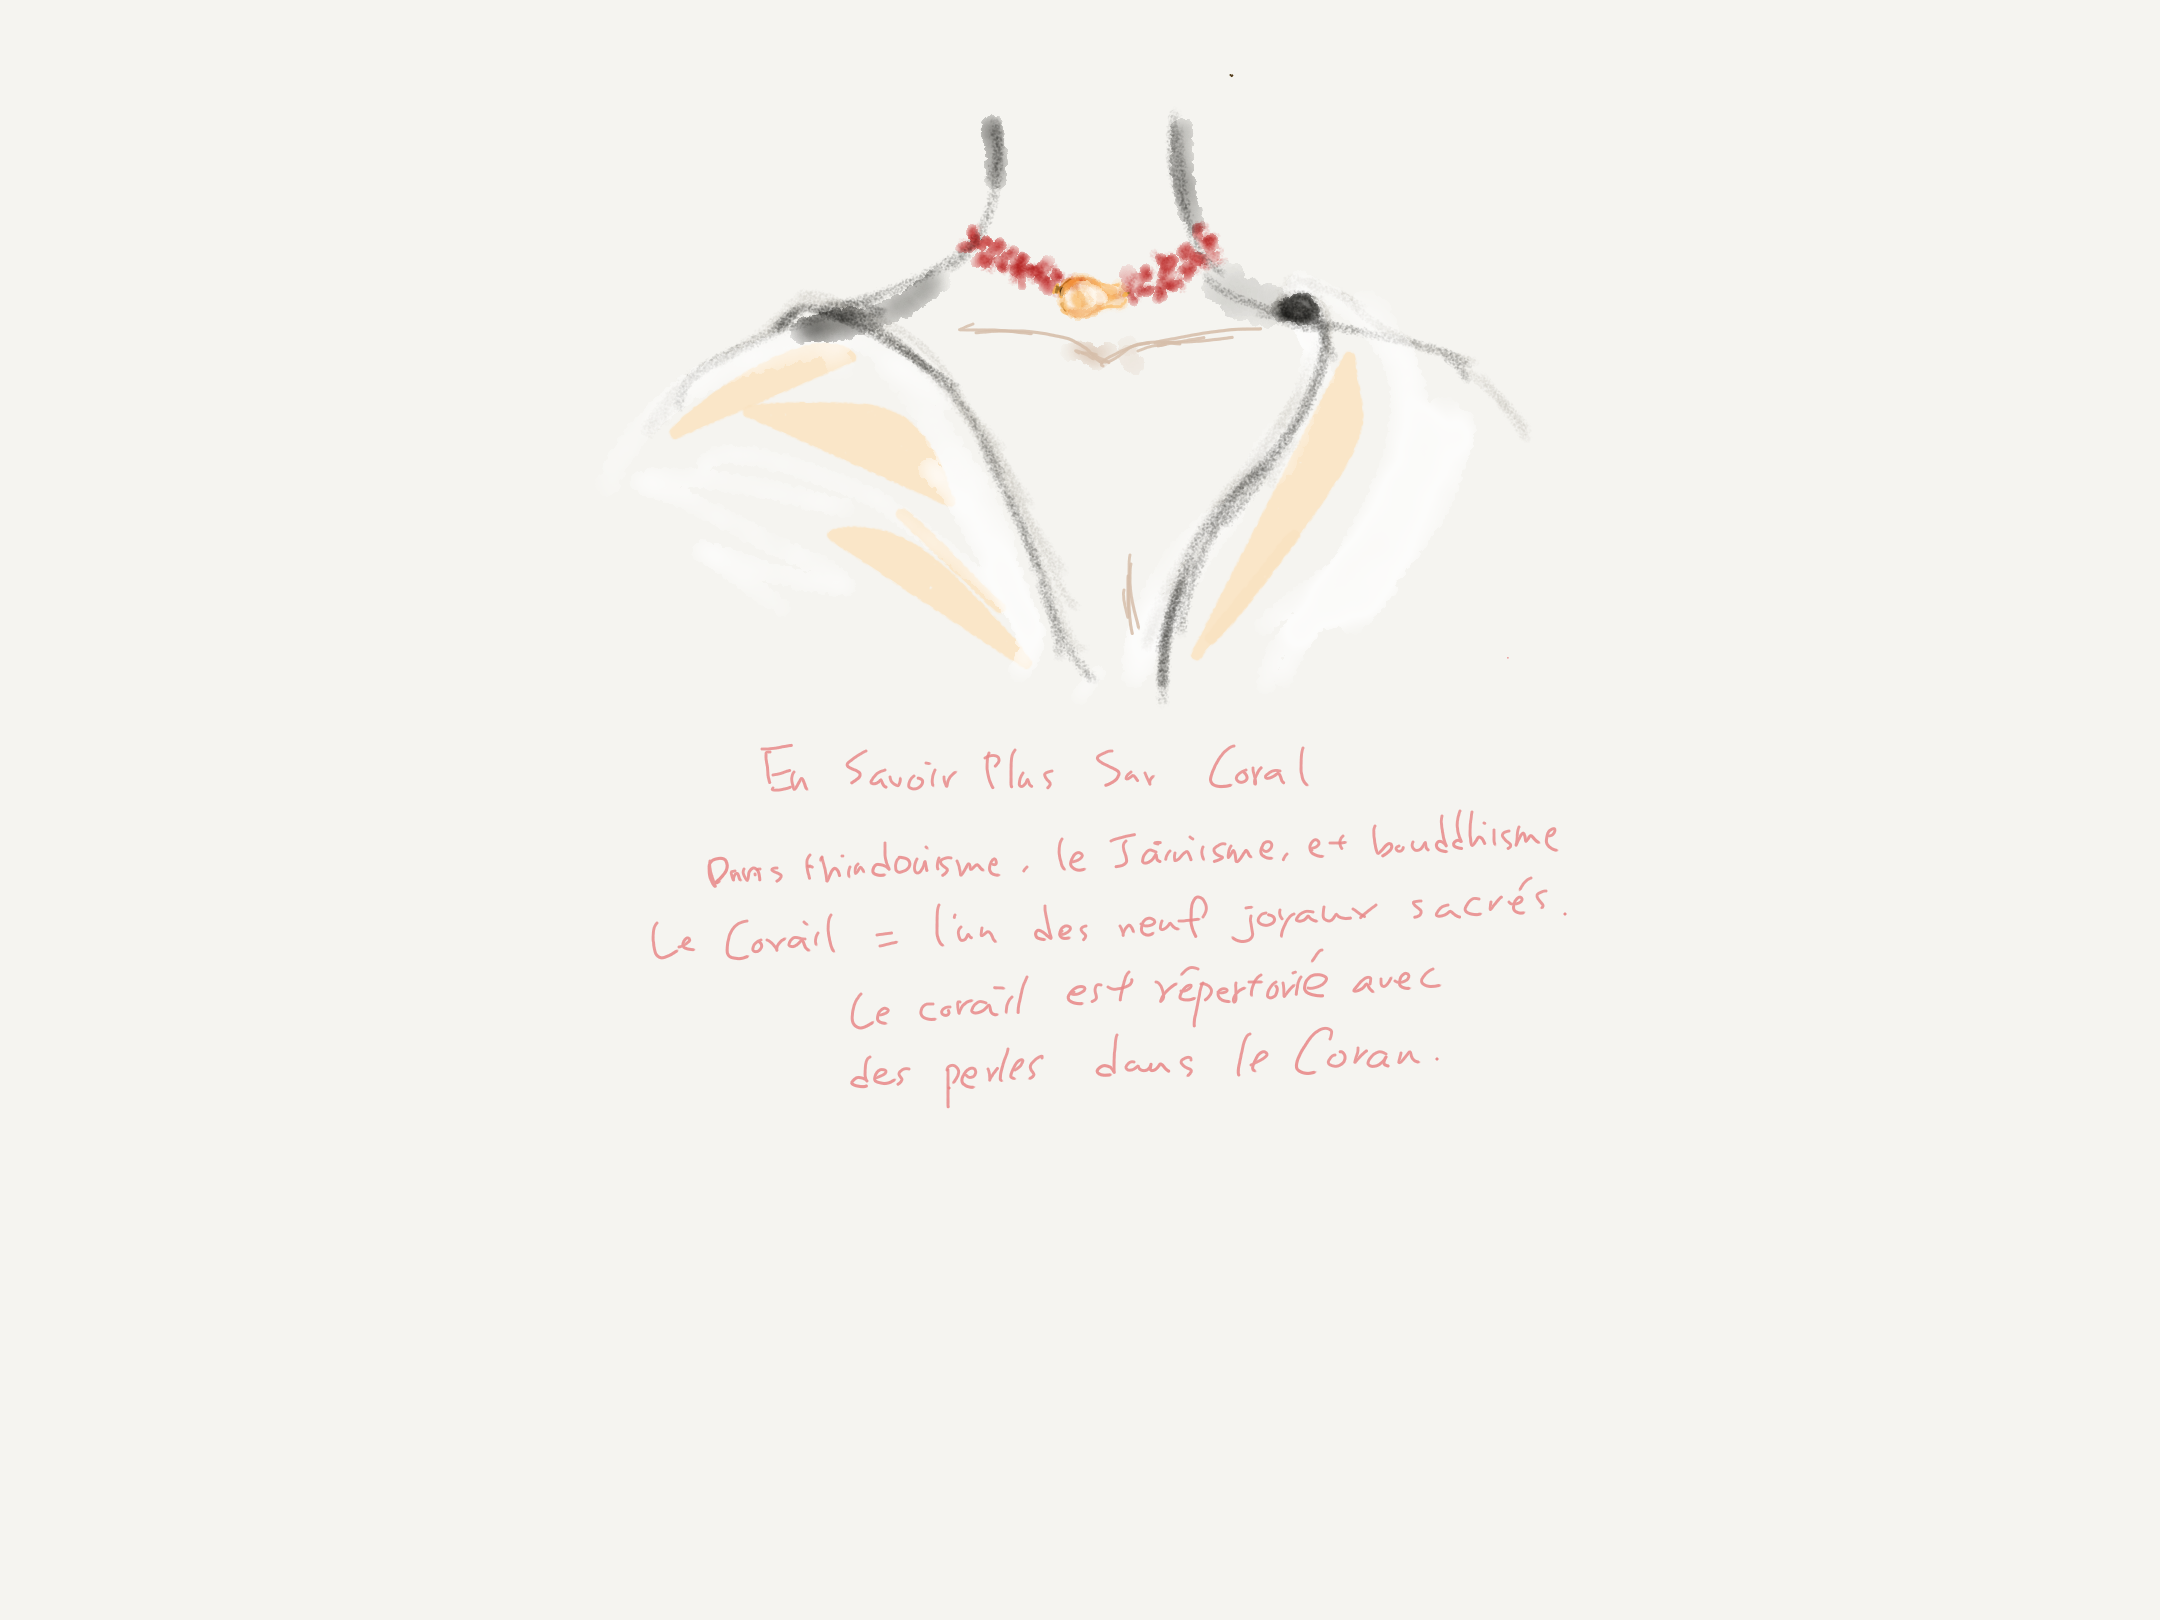 En Savoir Plus Sur Coral
Dans thindouisme, le Jaïnisme, et bouddhisme
Le Corail = l'un des neuf joyaux sacrés.
Le corail est répertorié avec
des perles dans le Coran.